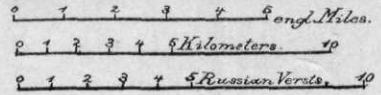 0 1 2 3 4 5 engl. Miles.
0 1 2 3 4 5 Kilometers. 10
0 1 2 3 4 5 Russian Versts. 10